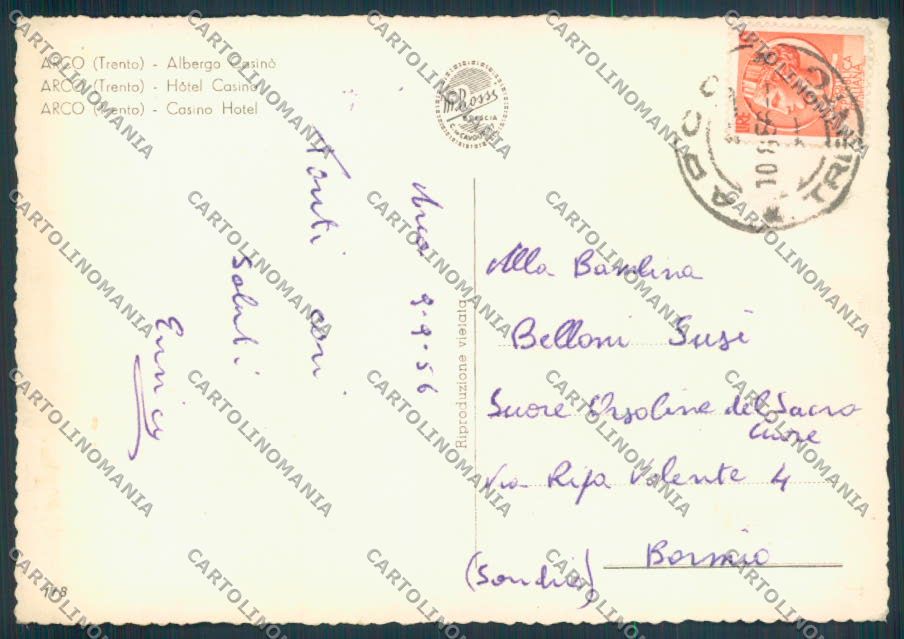 ARCO (Trento) - Albergo Casinò
ARCO (Trento) - Hôtel Casino
ARCO (Trento) - Casino Hotel
BRESCIA
Arco 9-9-56
Tanti cari
saluti
Enrico
Riproduzione vietata
LIRE
ARCO
TRENTO
Alla Bambina
Belloni Susi
Suore Orsoline del Sacro
Cuore
Via Ripa Valente 4
Bormio
(Sondrio)
118
CARTOLINOMANIA